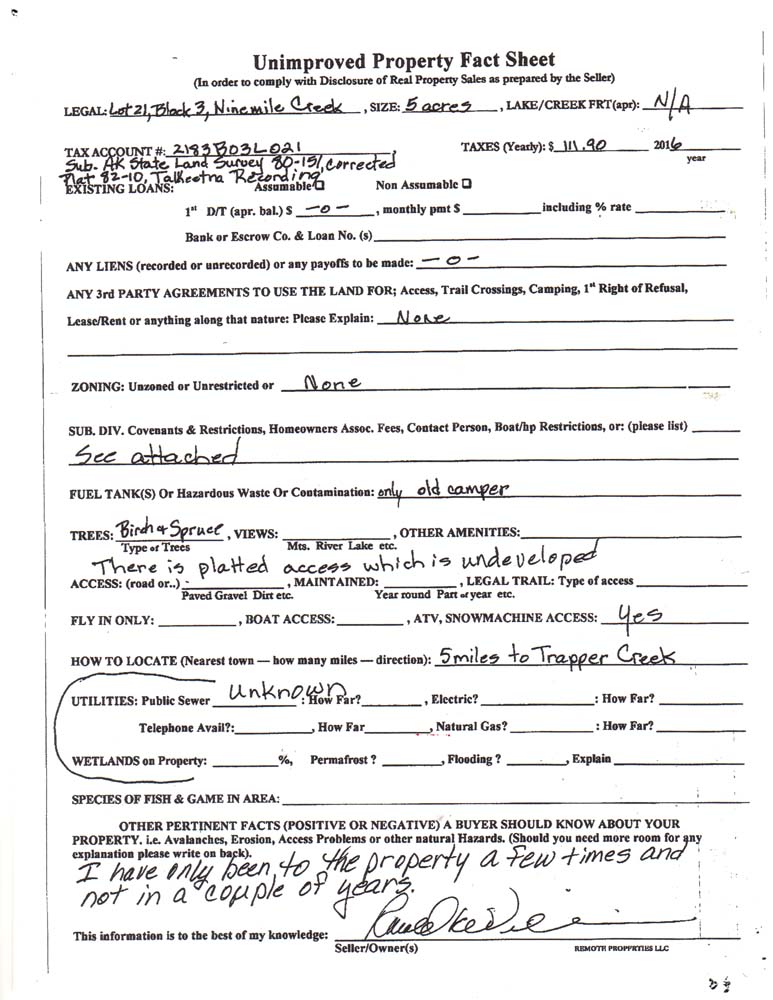 Unimproved Property Fact Sheet
(In order to comply with Disclosure of Real Property Sales as prepared by the Seller)
LEGAL: Lot 21, Block 3, Ninemile Creek, SIZE: 5 acres, LAKE/CREEK FRT(apr): N/A
TAX ACCOUNT #: 2183B03L021, TAXES (Yearly): $ 111.90 2016
year
Sub. AK State Land Survey 80-151, corrected
Plat 82-10, Talkeetna Recording
EXISTING LOANS: Assumable Non Assumable
1st D/T (apr. bal.) $ -0-, monthly pmt $ including % rate
Bank or Escrow Co. & Loan No. (s)
ANY LIENS (recorded or unrecorded) or any payoffs to be made: -0-
ANY 3rd PARTY AGREEMENTS TO USE THE LAND FOR; Access, Trail Crossings, Camping, 1st Right of Refusal,
Lease/Rent or anything along that nature: Please Explain: None
ZONING: Unzoned or Unrestricted or None
SUB. DIV. Covenants & Restrictions, Homeowners Assoc. Fees, Contact Person, Boat/hp Restrictions, or: (please list)
See attached
FUEL TANK(S) Or Hazardous Waste Or Contamination: only old camper
TREES: Birch & Spruce, VIEWS: , OTHER AMENITIES:
Type of Trees Mts. River Lake etc.
There is platted access which is undeveloped
ACCESS: (road or..) , MAINTAINED: , LEGAL TRAIL: Type of access
Paved Gravel Dirt etc. Year round Part of year etc.
FLY IN ONLY: , BOAT ACCESS: , ATV, SNOWMACHINE ACCESS: Yes
HOW TO LOCATE (Nearest town — how many miles — direction): 5 miles to Trapper Creek
UTILITIES: Public Sewer Unknown : How Far? , Electric? : How Far?
Telephone Avail?: , How Far , Natural Gas? : How Far?
WETLANDS on Property: %, Permafrost ? , Flooding ? , Explain
SPECIES OF FISH & GAME IN AREA:
OTHER PERTINENT FACTS (POSITIVE OR NEGATIVE) A BUYER SHOULD KNOW ABOUT YOUR
PROPERTY. i.e. Avalanches, Erosion, Access Problems or other natural Hazards. (Should you need more room for any
explanation please write on back).
I have only been to the property a few times and
not in a couple of years.
This information is to the best of my knowledge:
Seller/Owner(s) REMOTE PROPERTIES LLC